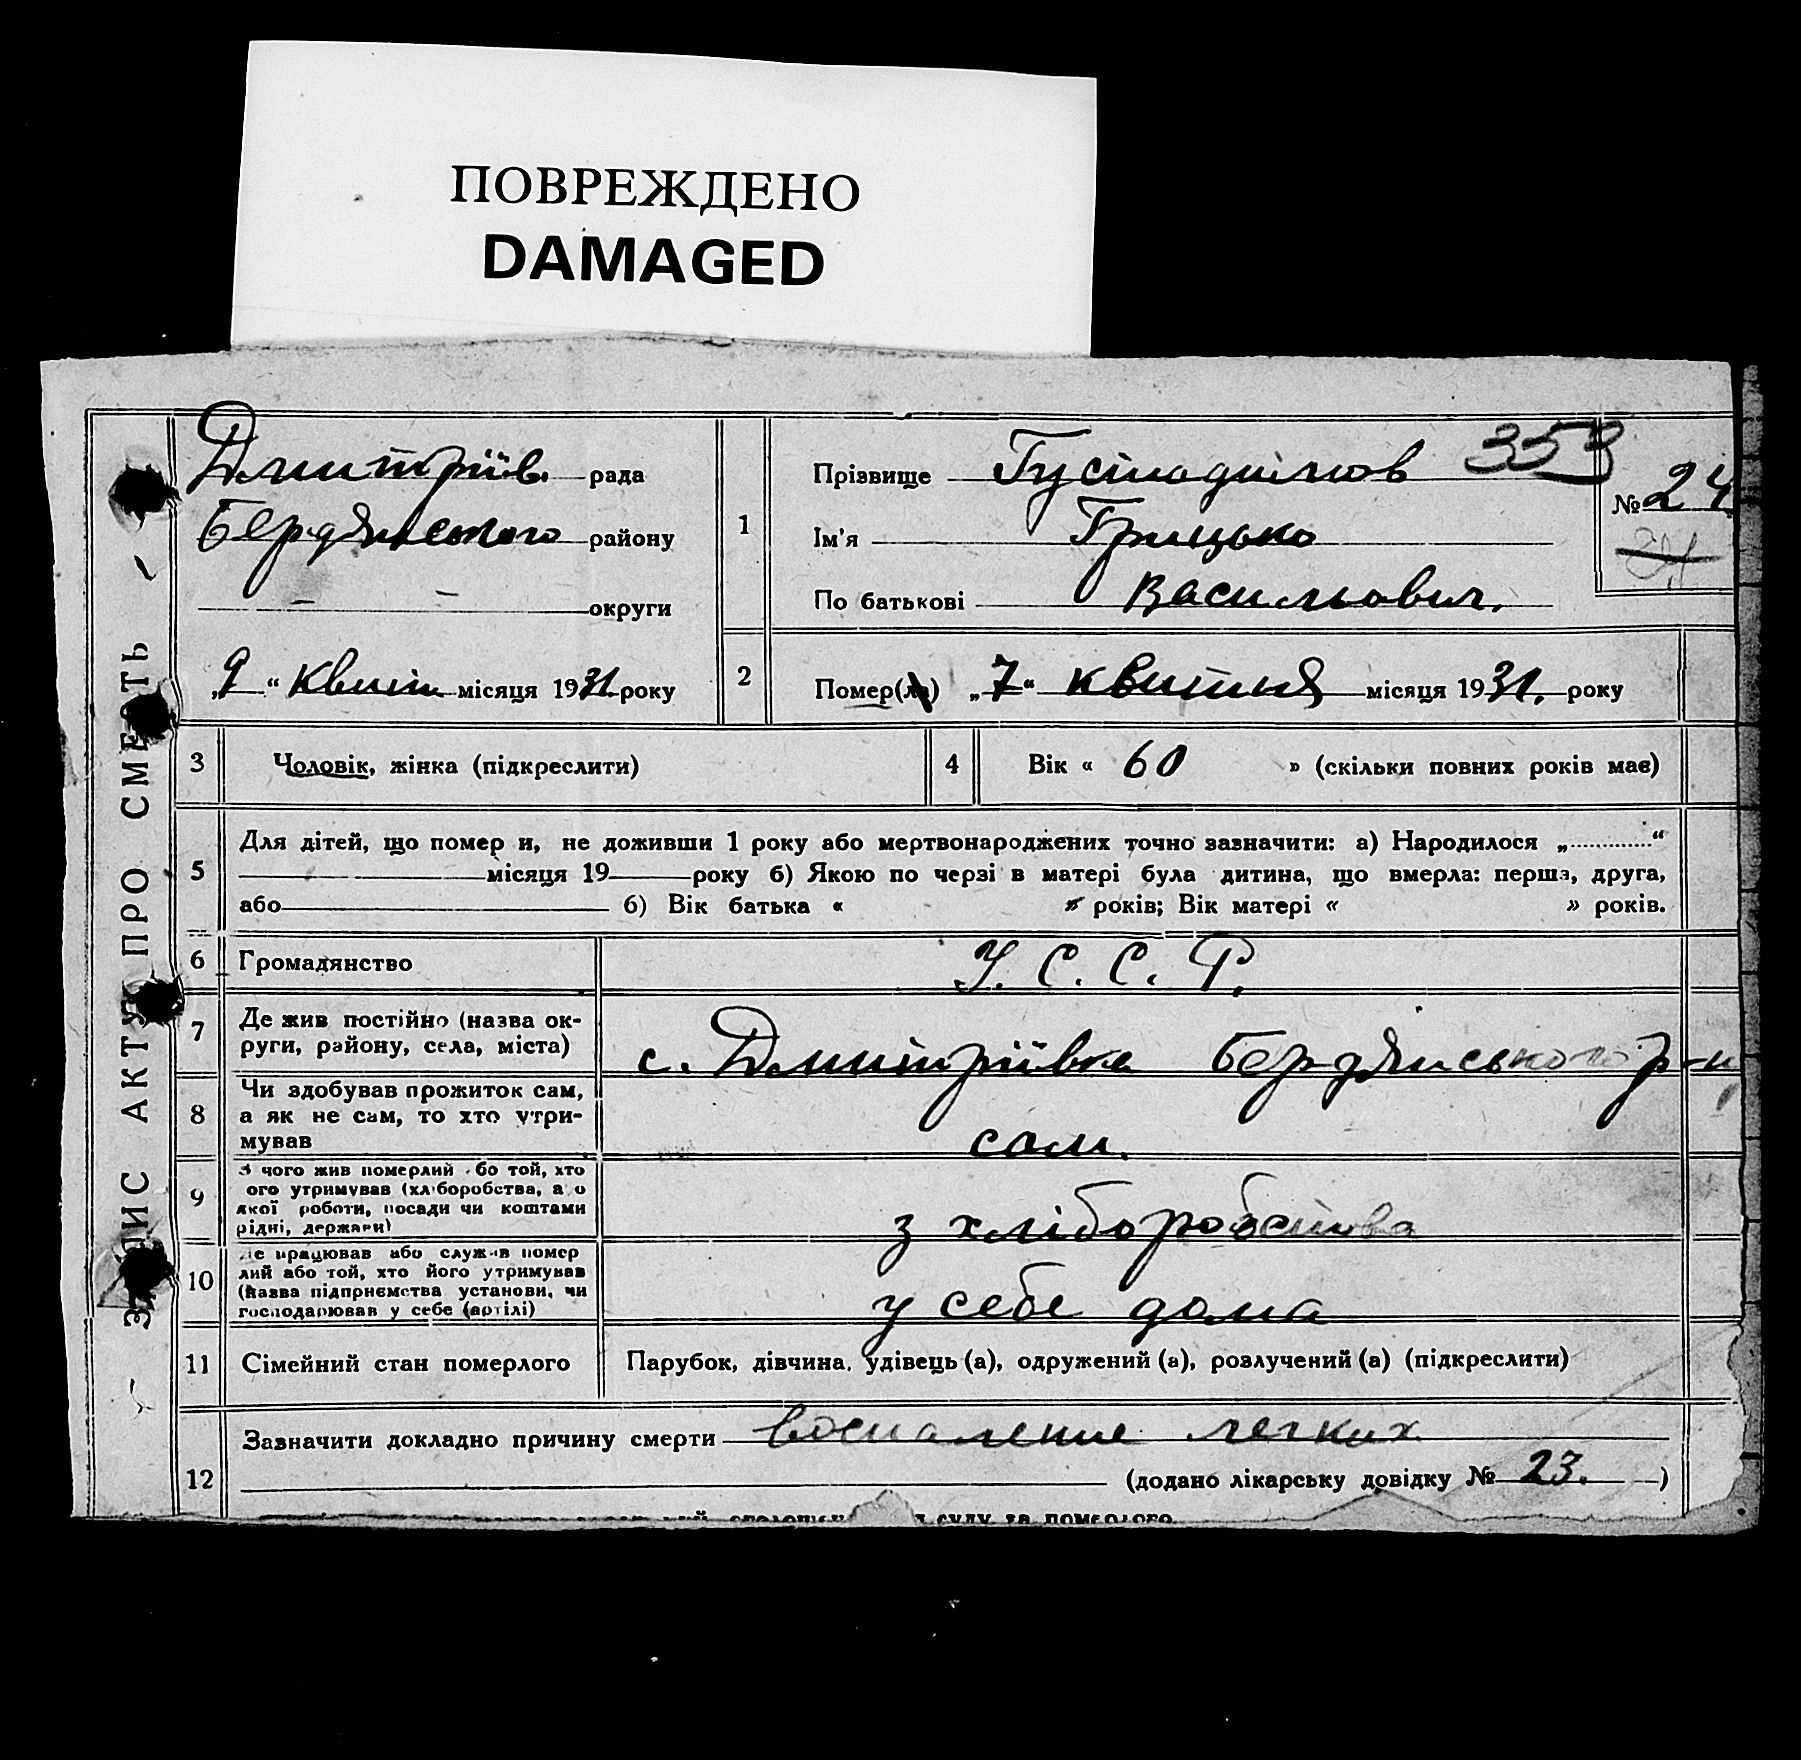 ПОВРЕЖДЕНО
DAMAGED
ЗАПИС АКТУ ПРО СМЕРТЬ
Дмитріїв. рада
Бердянського району
округи
„9“ Квітн місяця 1931 року
1
Прізвище
353
Ім'я Грицько
По батькові Васильович.
№ 24
2
Помер(ла) „7“ квітня місяця 1931. року
3 Чоловік, жінка (підкреслити)
4 Вік « 60 » (скільки повних років має)
5
Для дітей, що помер и, не доживши 1 року або мертвонароджених точно зазначити: а) Народилося „ “
місяця 19 року б) Якою по черзі в матері була дитина, що вмерла: перша, друга,
або б) Вік батька « » років; Вік матері « » років.
6 Громадянство У. С. С. Р.
7 Де жив постійно (назва ок-
руги, району, села, міста)
с. Дмитріївка Бердянського р-н
8 Чи здобував прожиток сам,
а як не сам, то хто утри-
мував
сам.
9 З чого жив померлий бо той, хто
ого утримував (хліборобства, а о
якої роботи, посади чи коштами
рідні, держави)
з хліборобства
10 Де працював або служив помер
лий або той, хто його утримував
(назва підприємства установи, чи
господарював у себе (артілі)
у себе дома
11 Сімейний стан померлого Парубок, дівчина, удівець (а), одружений (а), розлучений (а) (підкреслити)
12 Зазначити докладно причину смерти воспаление легких
(додано лікарську довідку № 23. )
суду та померлого.